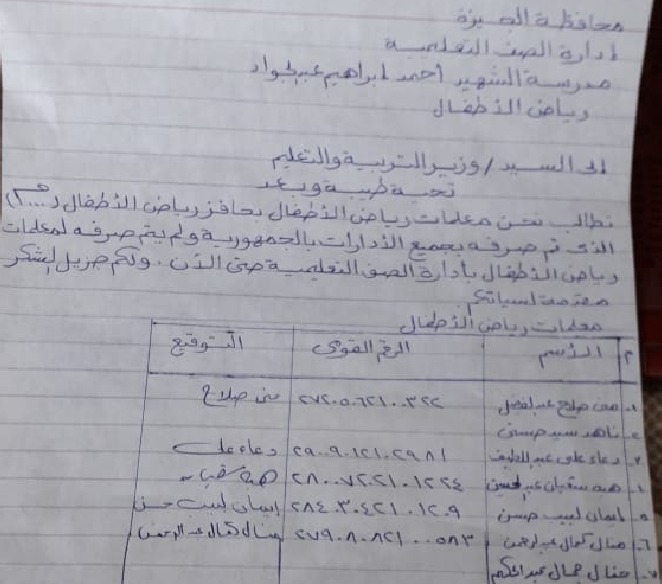 محافظة الجيزة
إدارة الصف التعليمية
مدرسة الشهيد أحمد إبراهيم عبدالجواد
رياض الأطفال
إلى السيد / وزير التربية والتعليم
تحية طيبة وبعد
نطالب نحن معلمات رياض الأطفال بحافز رياض الأطفال
الذى تم صرفه بجميع الأدارات بالجمهورية ولم يتم صرفه لمعلمات
رياض الأطفال بأدارة الصف التعليمية حتى الآن . ولكم جزيل الشكر
مقدمة لسيادتكم
معلمات رياض الأطفال
م الأسم الرقم القومى التوقيع
١- منى صلاح منى صلاح
٢- ناهد سيد حسن
٣- دعاء على عبد اللطيف ٢٩٠٠٩٠١٢١٠٢٩٨١ دعاء على
٤- هبه
٥- إيمان لبيب حسن إيمان لبيب حسن
٦- منال كمال عبدالرحمن منال كمال عبد الرحمن
٧- جمال عبدالحكيم